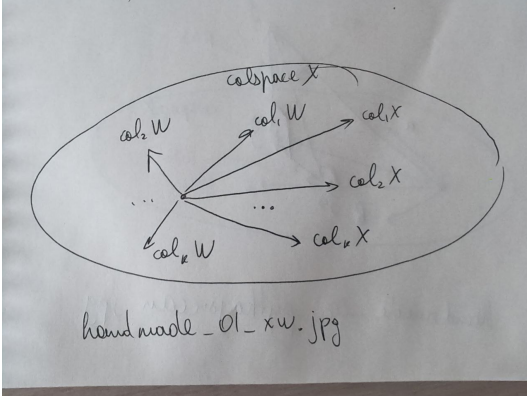 colspace X
col₁ W
col₁ X
col₂ W
col₂ X
...
...
colₖ W
colₖ X
handmade_01_xw.jpg